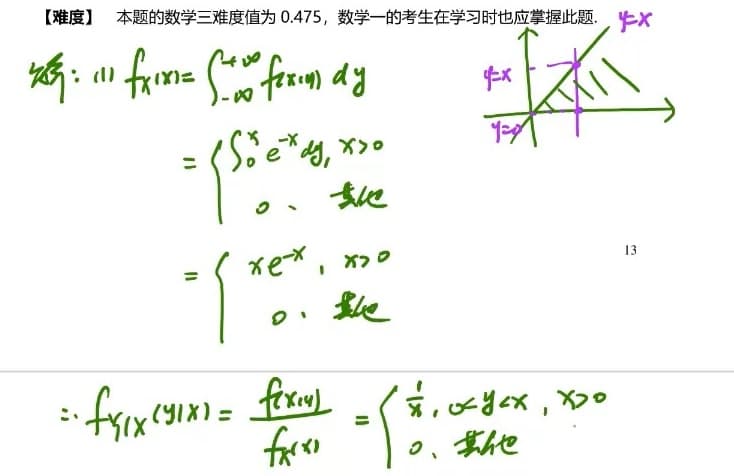 【难度】 本题的数学三难度值为 0.475，数学一的考生在学习时也应掌握此题.
解：(1) f_X(x)=∫_{-∞}^{+∞} f(x,y) dy
y=x
y=x
y=0
= { ∫_0^x e^{-x} dy, x>0
0、 其他
= { xe^{-x}, x>0
0、 其他
13
∴ f_{Y|X}(y|x) = f(x,y) / f_X(x) = { 1/x, 0<y<x, x>0
0、其他